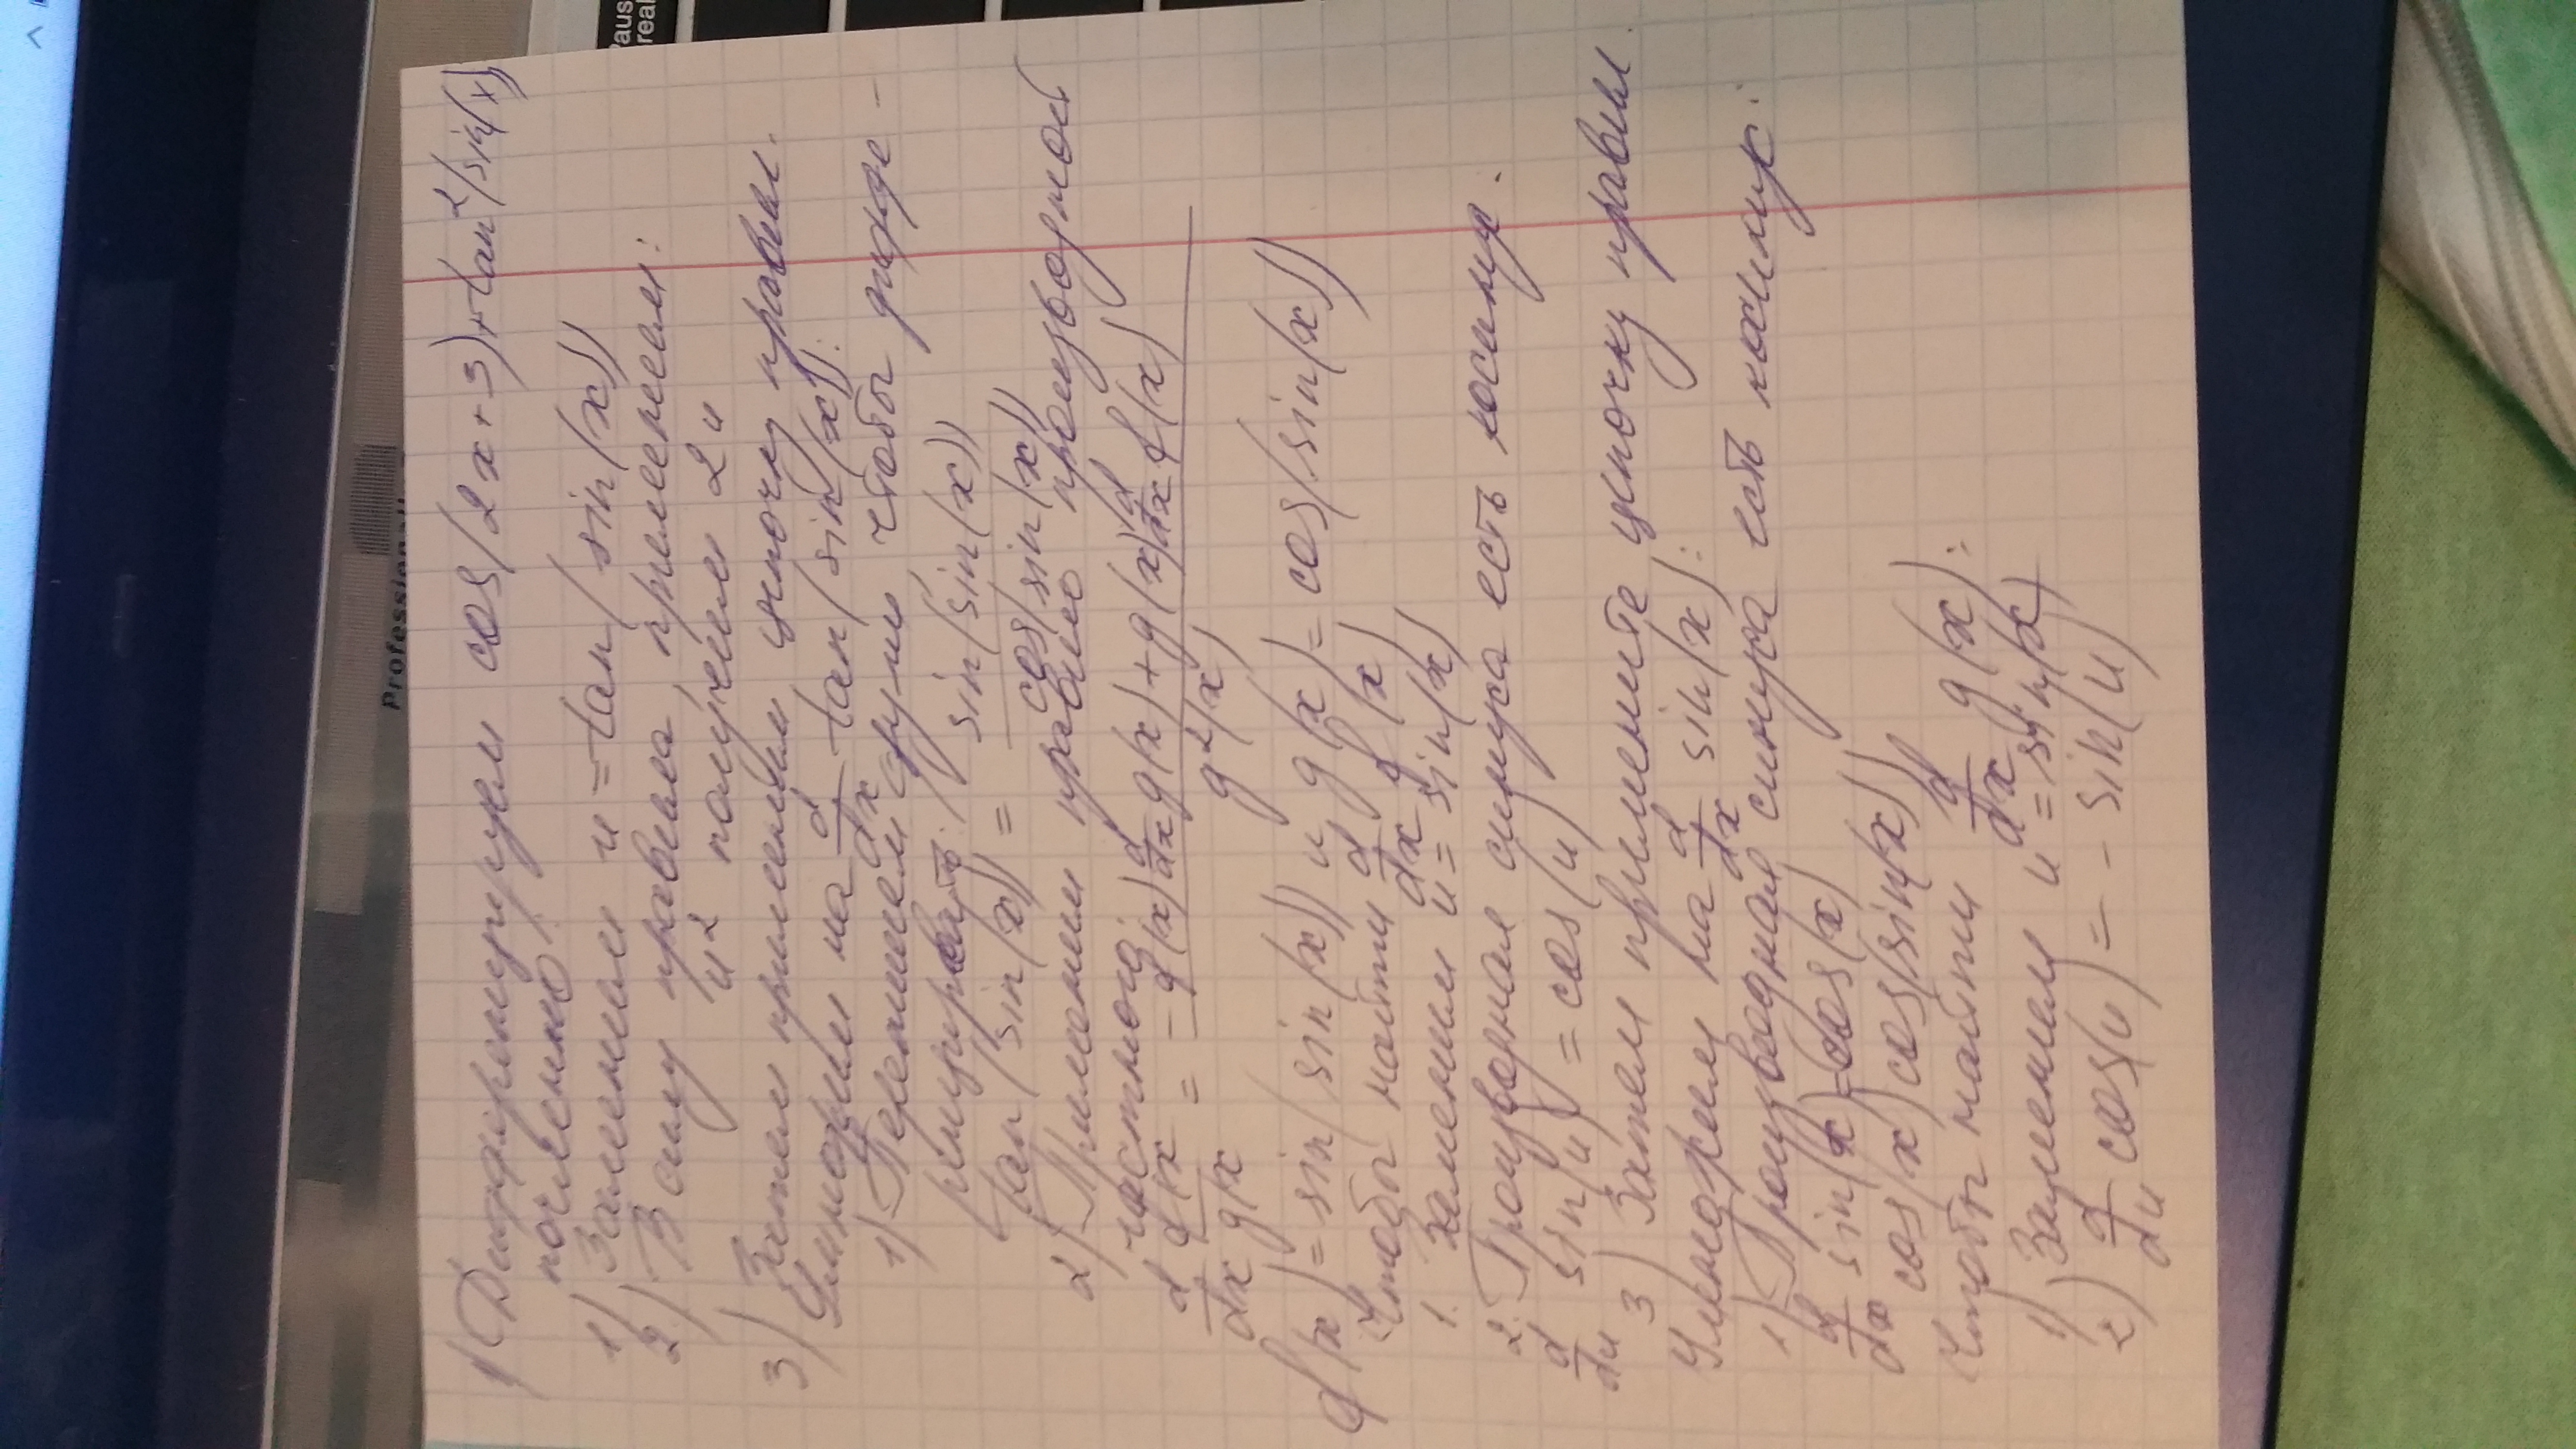 Professionally
Paus
real
1) Дифференцируем cos(2x+3)+tan²(sin(x))
почленно:
1) Заменим u = tan(sin(x))
2) В силу правила, применим:
u² получим 2u
3) Затем применим цепочку правил.
Умножим на d/dx tan(sin(x)):
1) Перепишем функции, чтобы диффе-
ренцировать:
tan(sin(x)) = sin(sin(x))/cos(sin(x))
2) Применим правило производной
частного:
d/dx f(x/g(x = (-f(x) d/dx g(x) + g(x) d/dx f(x))/g²(x)
f(x) = sin(sin(x)) и g(x) = cos(sin(x))
Чтобы найти d/dx f(x)
1. Заменим u = sin(x)
2. Производная синуса есть косинус.
d/du sin(u) = cos(u)
3) Затем примените цепочку правил.
Умножим на d/dx sin(x):
1) Производная синуса есть косинус:
d/dx sin(x) = cos(x)
cos(x) cos(sin(x))
Чтобы найти d/dx g(x):
1) Заменим u = sin(x)
2) d/du cos(u) = - sin(u)